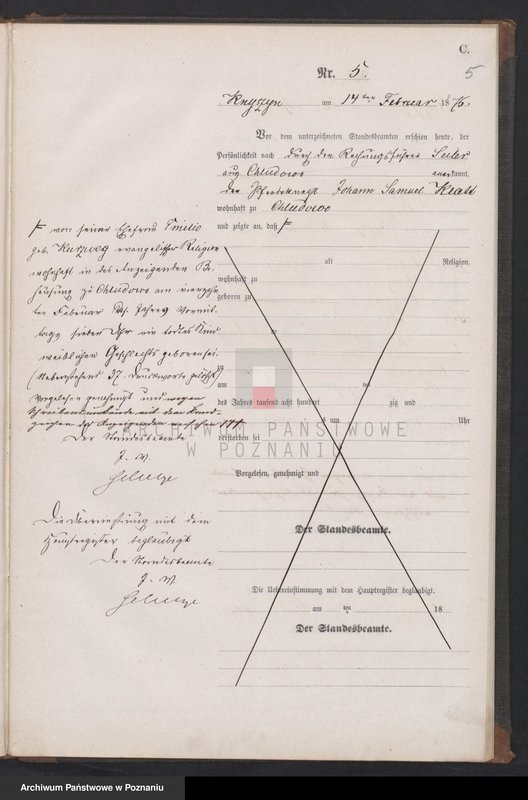 C.
5
Nr. 5.
Knyszyn am 14ten Februar 1876.
Vor dem unterzeichneten Standesbeamten erschien heute, der
Persönlichkeit nach durch den Rechnungsführer
aus Chludowo anerkannt,
der Pferdeknecht Johann Samuel
wohnhaft zu Chludowo
und zeigte an, daß
von seiner Ehefrau Emilie
geb. evangelischer Religion
wohnhaft in des Anzeigenden Be-
hausung zu Chludowo am vierzehn-
ten Februar ds. Jahres Vormit-
tags sieben Uhr ein todtes Kind
weiblichen Geschlechts geboren sei.
(Nebenstehend 37 Druckworte gelöscht)
Vorgelesen genehmigt und wegen
Schreibensunkunde mit dem Hand-
zeichen des Anzeigenden versehen +++
Der Standesbeamte
J. V.
Die Übereinstimmung mit dem
Hauptregister beglaubigt
Der Standesbeamte
J. V.
alt Religion,
wohnhaft zu
geboren zu
zu
am ten
des Jahres tausend acht hundert zig und
um Uhr
verstorben sei
Vorgelesen, genehmigt und
Der Standesbeamte.
Die Uebereinstimmung mit dem Hauptregister beglaubigt.
am ten 18
Der Standesbeamte.
ARCHIWUM PAŃSTWOWE
W POZNANIU
Archiwum Państwowe w Poznaniu